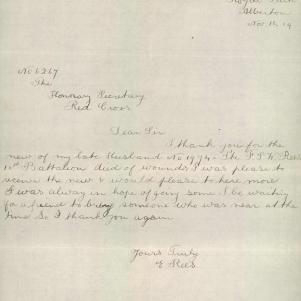 Alberton
Nov 11. 19
No 6267
The
Honorary Secretary
Red Cross
Dear Sir
I thank you for the
news of my late Husband No 1974 The
1st Battalion died of wounds, I was please to
receive the news & would please to here more
I was always in hope of going some I be waiting
for a friend to bring someone who was near at the
time So I thank you again
Yours Truly
E Rees